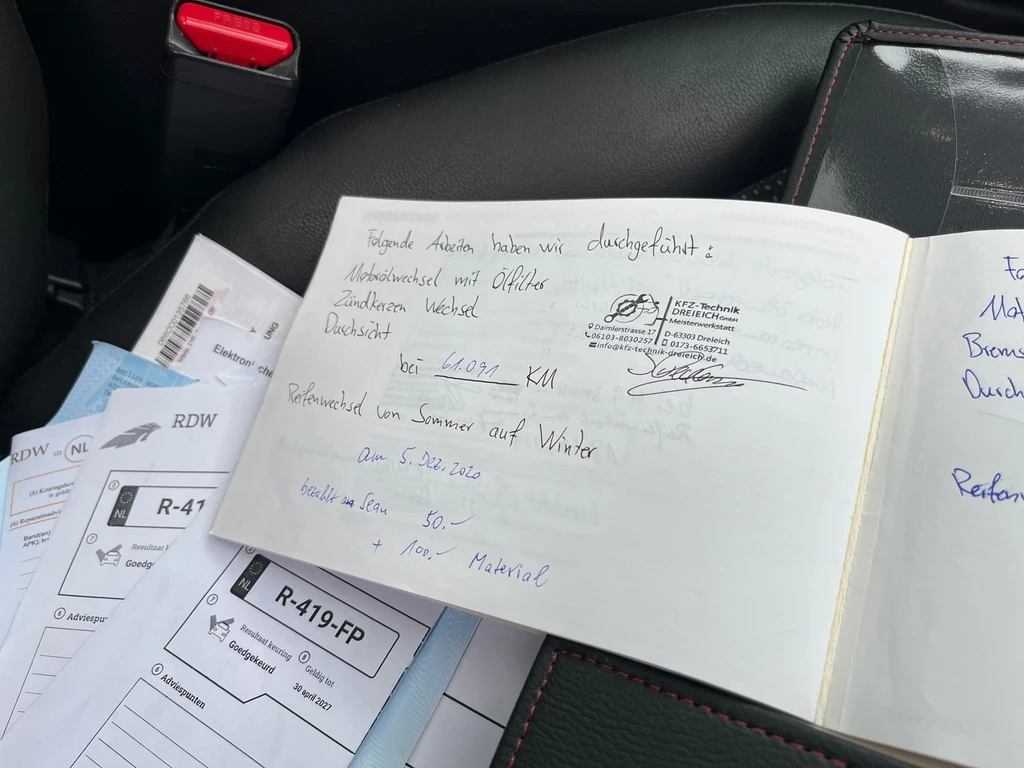 PRESS
Folgende Arbeiten haben wir durchgeführt:
Motorölwechsel mit Ölfilter
Zündkerzen Wechsel
Durchsicht
KFZ-Technik
DREIEICH GmbH
Meisterwerkstatt
Daimlerstrasse 17
D-63303 Dreieich
06103-8030257
0173-6653711
info@kfz-technik-dreieich.de
bei 61.091 KM
Reifenwechsel von Sommer auf Winter
am 5. Dez. 2020
bezahlt an Sean 50.-
+ 100,- Material
Fo
Mot
Brems
Durch
Reifen
UNG
Elektroni che
RDW
NL
R-41
Resultaat keuring
Goedg
Adviespu
RDW
NL
NL
R-419-FP
Resultaat keuring
Goedgekeurd
Geldig tot
30 april 2027
Adviespunten